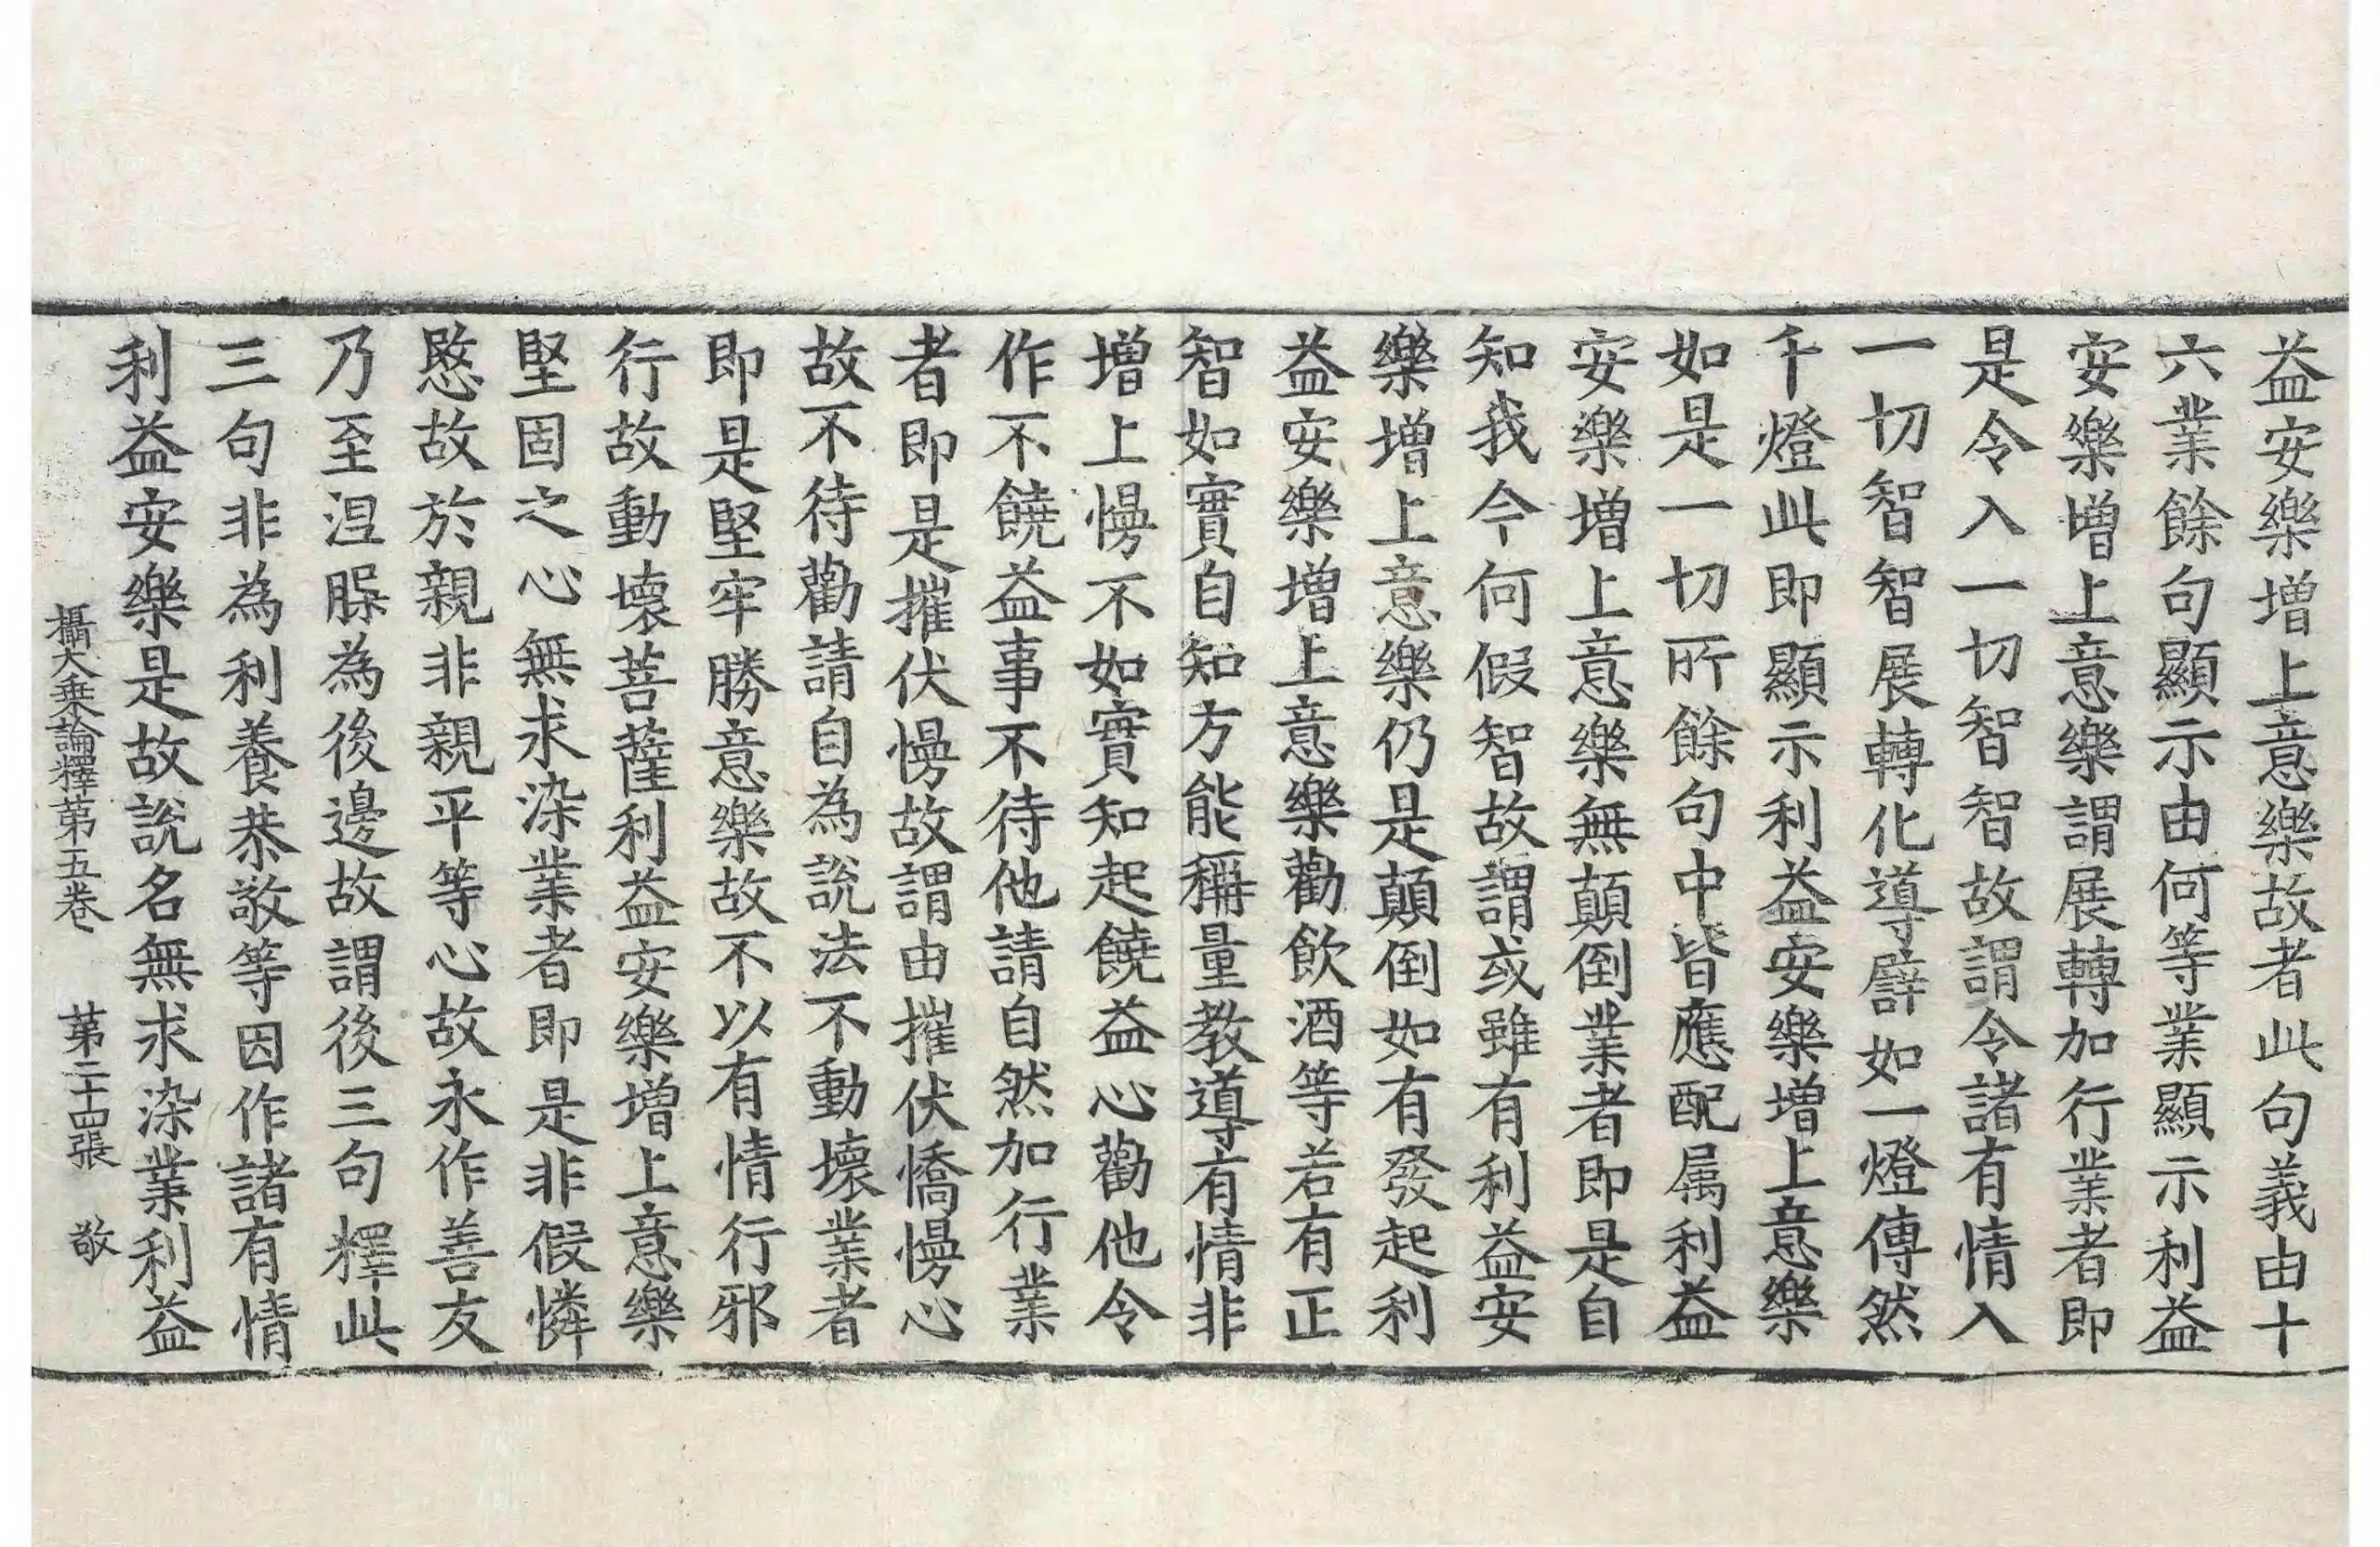 益安樂增上意樂故者此句義由十
六業餘句顯示由何等業顯示利益
安樂增上意樂謂展轉加行業者即
是令入一切智智故謂令諸有情入
一切智智展轉化導譬如一燈傳然
千燈此即顯示利益安樂增上意樂
如是一切所餘句中皆應配属利益
安樂增上意樂無顛倒業者即是自
知我今何假智故謂或雖有利益安
樂增上意樂仍是顛倒如有發起利
益安樂增上意樂勸飲酒等若有正
智如實自知方能稱量教導有情非
增上慢不如實知起饒益心勸他令
作不饒益事不待他請自然加行業
者即是摧伏慢故謂由摧伏憍慢心
故不待勸請自為說法不動壞業者
即是堅牢勝意樂故不以有情行邪
行故動壞菩薩利益安樂增上意樂
堅固之心無求染業者即是非假憐
愍故於親非親平等心故永作善友
乃至涅槃為後邊故謂後三句釋此
三句非為利養恭敬等因作諸有情
利益安樂是故說名無求染業利益
攝大乗論釋苐五卷 苐二十四張 敬